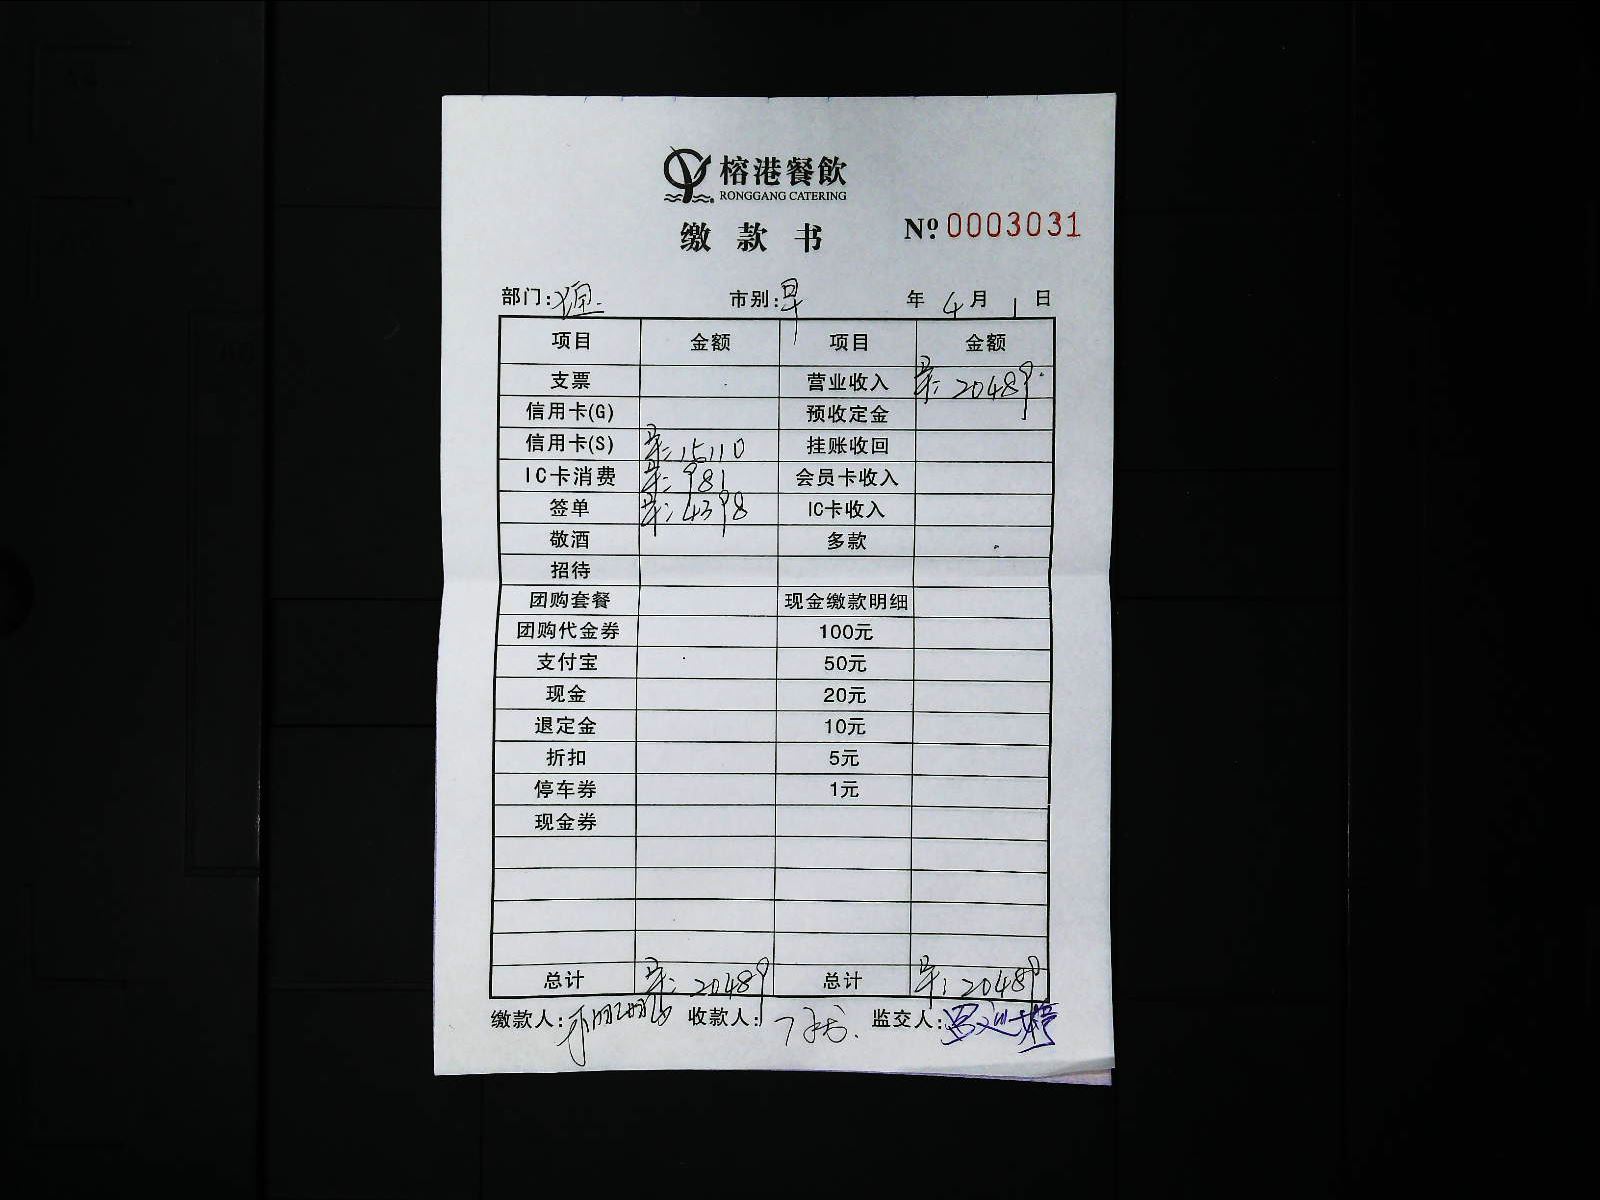 榕港餐飲
RONGGANG CATERING
缴款书 Nº 0003031
部门: 市别:早 年 4月 1日
项目 金额 项目 金额
支票 营业收入 早:20489
信用卡(G) 预收定金
信用卡(S) 早:15110 挂账收回
IC卡消费 早:981 会员卡收入
签单 早:4398 IC卡收入
敬酒 多款
招待
团购套餐 现金缴款明细
团购代金券 100元
支付宝 50元
现金 20元
退定金 10元
折扣 5元
停车券 1元
现金券
总计 早:20489 总计 早:20489
缴款人: 收款人: 监交人: